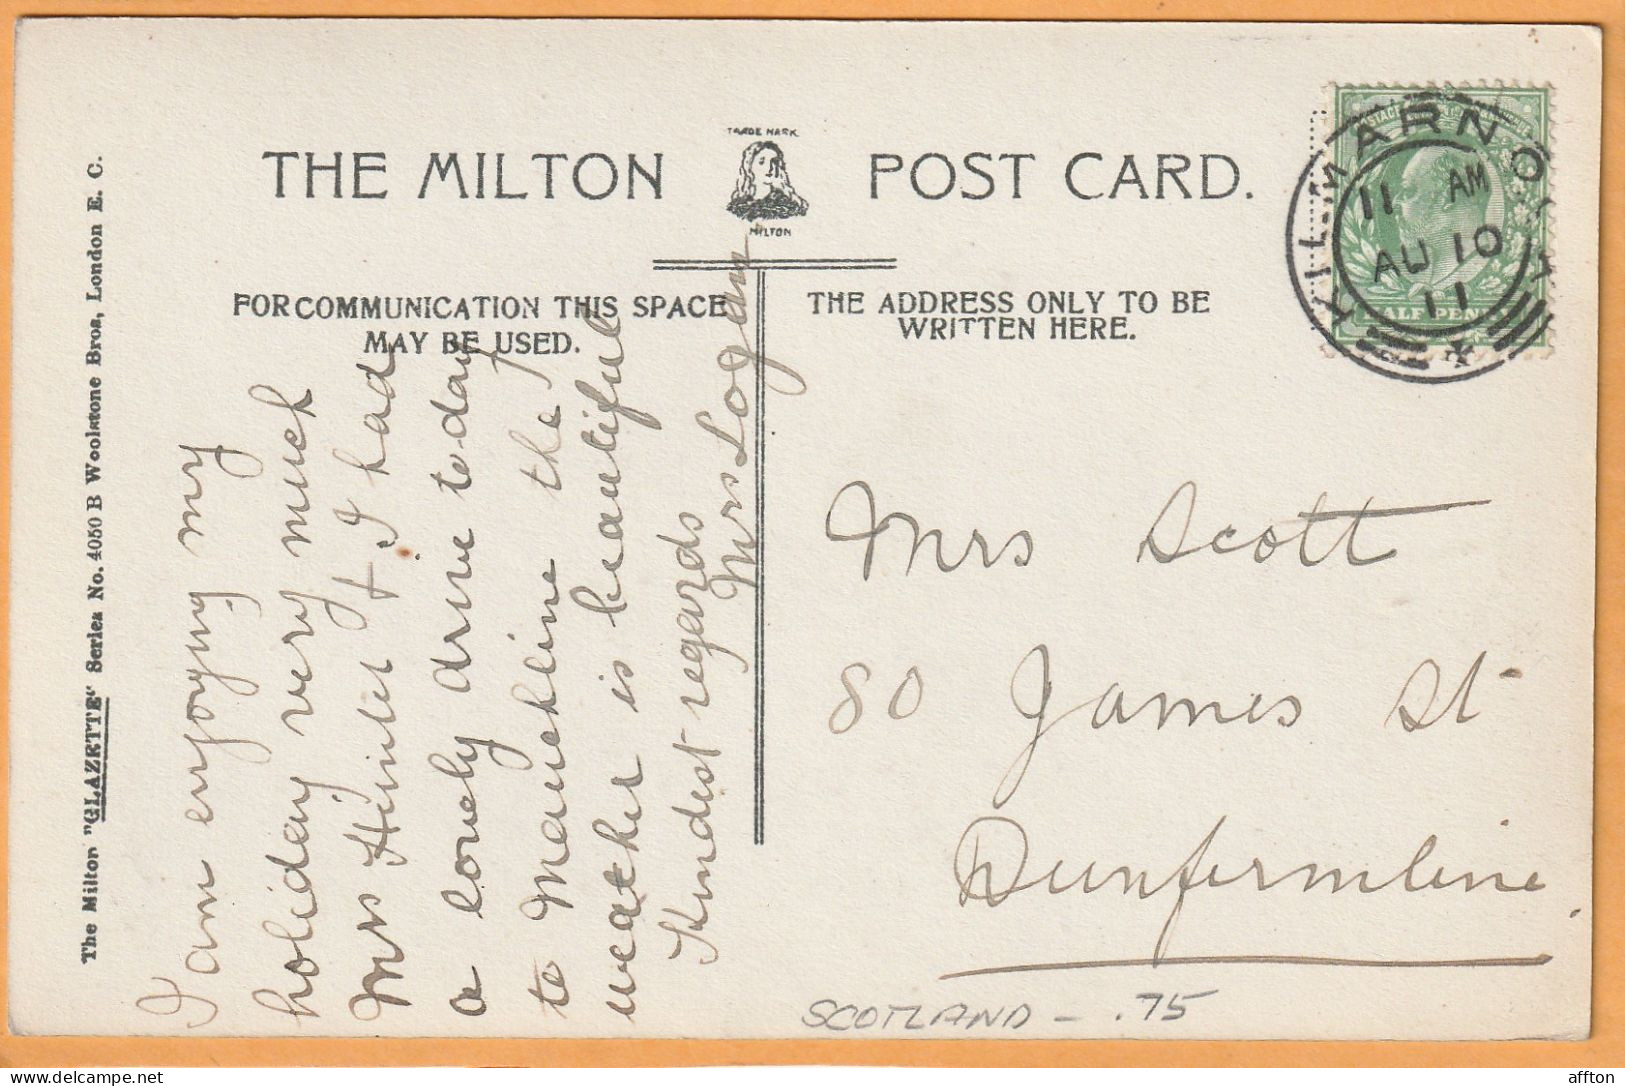 THE MILTON POST CARD.
TRADE MARK
MILTON
FOR COMMUNICATION THIS SPACE
MAY BE USED.
THE ADDRESS ONLY TO BE
WRITTEN HERE.
The Milton "GLAZETTE" Series No. 4050 B Woolstone Bros, London E. C.
I am enjoying my
holiday very much
Mrs Hunter & I had
a lovely drive to day
to Mauchline the
weather is beautiful
Kindest regards
Mrs Logan
KILMARNOCK
11 AM
AU 10
11
HALF PENNY
Mrs Scott
80 James St
Dunfermline
SCOTLAND - .75
affton